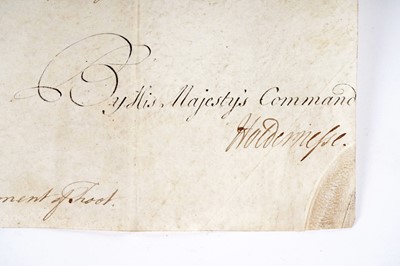 By His Majesty's Command
Holdernesse.
ment of Foot.